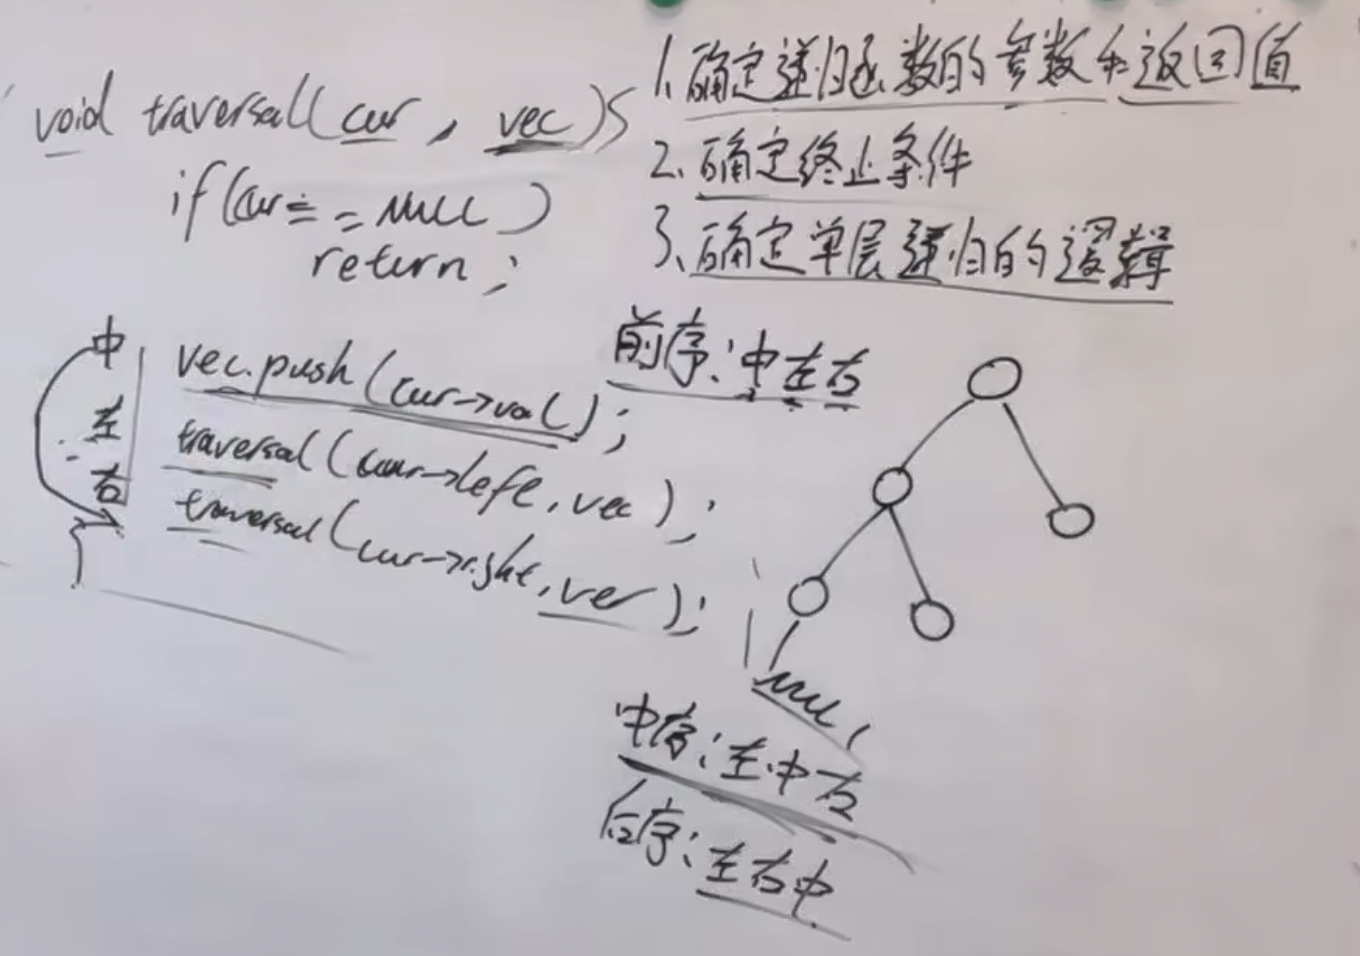 void traversal(cur, vec){
if(cur == NULL)
return;
中 vec.push(cur->val);
左 traversal(cur->left, vec);
右 traversal(cur->right, vec);
}
1. 确定递归函数的参数和返回值
2. 确定终止条件
3. 确定单层递归的逻辑
前序: 中左右
NULL
中序: 左中右
后序: 左右中